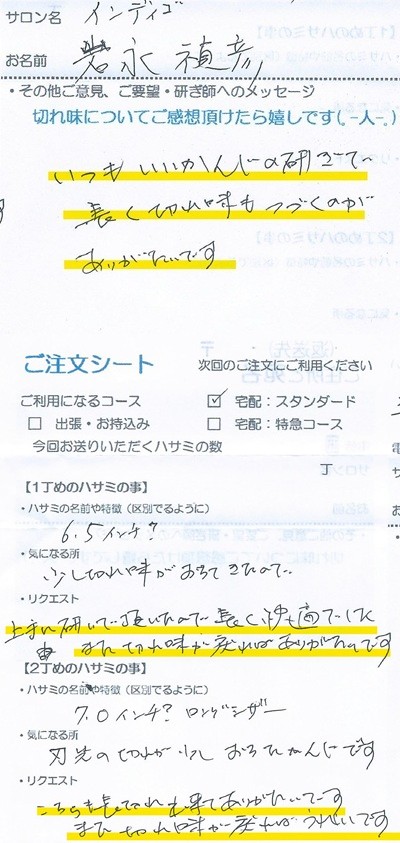 サロン名 インディゴ
お名前 岩永禎彦
・その他ご意見、ご要望・研ぎ師へのメッセージ
切れ味についてご感想頂けたら嬉しです(｡-人-｡)
いつも いいかんじの研ぎで
長く切れ味も つづくのが
ありがたいです
ご注文シート 次回のご注文にご利用ください
ご利用になるコース ☑ 宅配：スタンダード
□ 出張・お持込み □ 宅配：特急コース
今回お送りいただくハサミの数
丁
【1丁めのハサミの事】
・ハサミの名前や特徴（区別でるように）
6.5インチ?
・気になる所
少し切れ味がおちてきたので
・リクエスト
上手に研いで頂いたので 長く快適でした
また 切れ味が戻ればありがたいです
【2丁めのハサミの事】
・ハサミの名前や特徴（区別でるように）
7.0インチ? ロングシザー
・気になる所
刃先の切れが少し おちたかんじです
・リクエスト
こちらも長切れ出来てありがたいでーす
また 切れ味が戻れば うれしいです